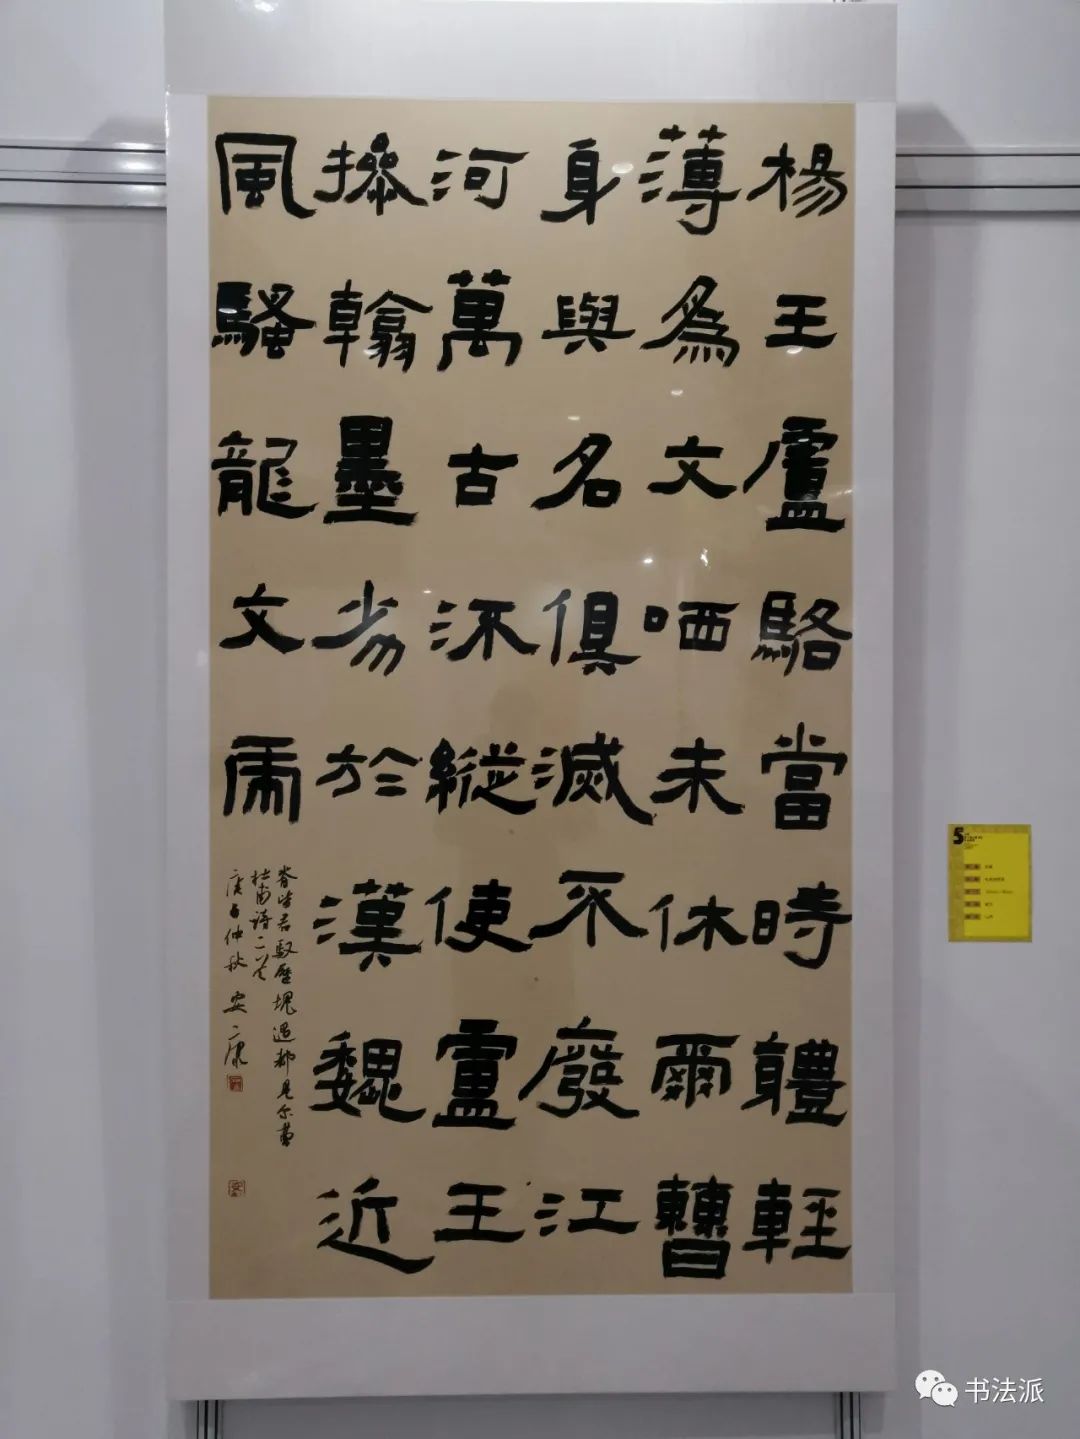 楊王盧駱當時體輕
薄為文哂未休爾曹
身與名俱滅不廢江
河萬古流縱使盧王
操翰墨劣於漢魏近
風騷龍文虎
脊皆君馭歷塊過都見尔曹
杜甫詩二首
庚子仲秋
5
书法派